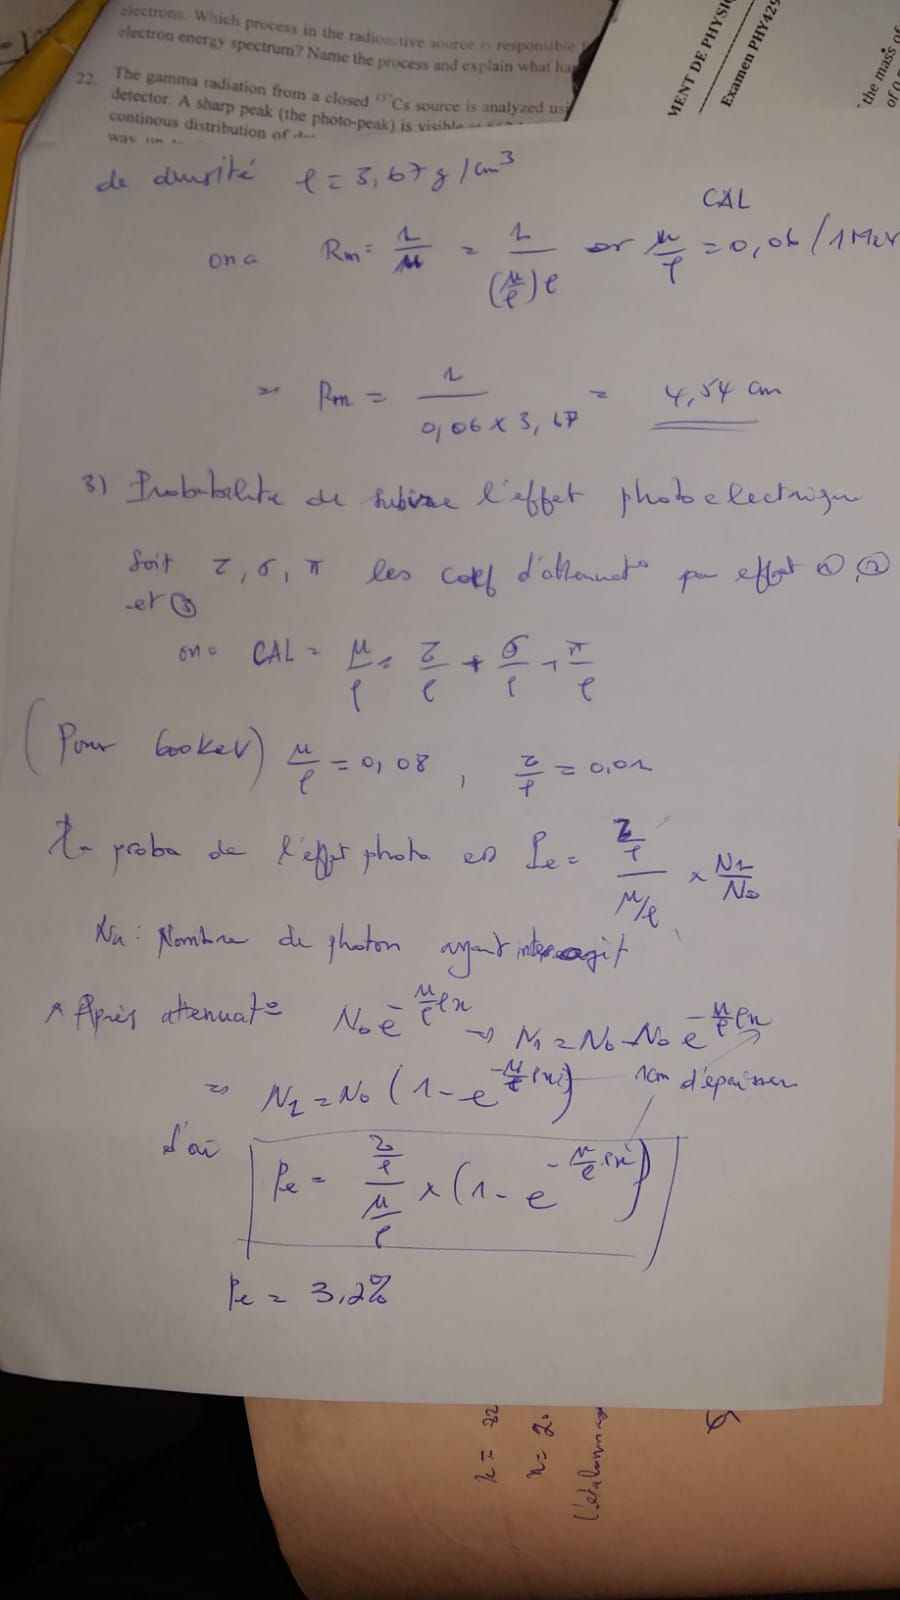 electrons. Which process in the radioactive source is responsible
electron energy spectrum? Name the process and explain what ha
22. The gamma radiation from a closed ¹³⁷Cs source is analyzed usi
detector. A sharp peak (the photo-peak) is visible
continous distribution of
way
MENT DE PHYSI
Examen PHY429
the mass of
of 0
de densité ρ = 3,67 g/cm³
CAL
on a Rm = 1/μ = 1/(μ/ρ)ρ or μ/ρ = 0,06 /1 MeV
Rm = 1/(0,06 x 3,67) = 4,54 cm
3) Probabilite de subire l'effet photoelectrique
Soit τ, σ, π les coef d'attenuat° par effet ①, ②
et ③
on a CAL = μ/ρ = τ/ρ + σ/ρ + π/ρ
(Pour 600keV) μ/ρ = 0,08 , τ/ρ = 0,01
La proba de l'effet photo est Pe = (τ/ρ)/(μ/ρ) x N1/N0
N1 : Nombre de photon ayant interagit
* Après attenuat° N0 e^(-μ/ρ ρx) → N1 = N0 - N0 e^(-μ/ρ ρx)
⇒ N1 = N0 (1 - e^(-μ/ρ ρx)) 1cm d'épaisseur
d'où
Pe = (τ/ρ)/(μ/ρ) x (1 - e^(-μ/ρ ρx))
Pe = 3,2%
n = 2